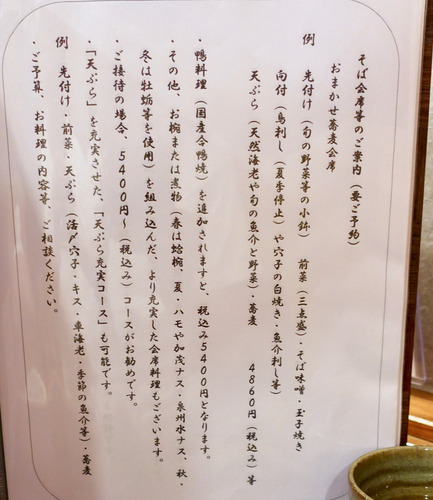 そば会席等のご案内（要ご予約）
おまかせ蕎麦会席
例　先付け（旬の野菜等の小鉢）　前菜（三点盛）・そば味噌・玉子焼き
向付（鳥刺し（夏季停止）や穴子の白焼き・魚介刺し等）
天ぷら（天然海老や旬の魚介と野菜）・蕎麦　４８６０円（税込み）等
・鴨料理（国産合鴨焼）を追加されますと、税込み５４００円となります。
・その他、お椀または煮物（春は蛤椀、夏・ハモや加茂ナス・泉州水ナス、秋・
冬は牡蛎等を使用）を組み込んだ、より充実した会席料理もございます。
・ご接待の場合、５４００円～（税込み）コースがお勧めです。
・「天ぷら」を充実させた、「天ぷら充実コース」も可能です。
例　先付け・前菜・天ぷら（活〆穴子・キス・車海老・季節の魚介等）・蕎麦
・ご予算、お料理の内容等、ご相談ください。